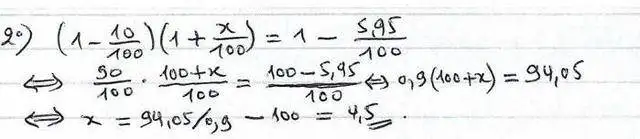 2°) (1 - 10/100)(1 + x/100) = 1 - 5,95/100
⟺ 90/100 · (100+x)/100 = (100 - 5,95)/100 ⟺ 0,9(100+x) = 94,05
⟺ x = 94,05/0,9 - 100 = 4,5.